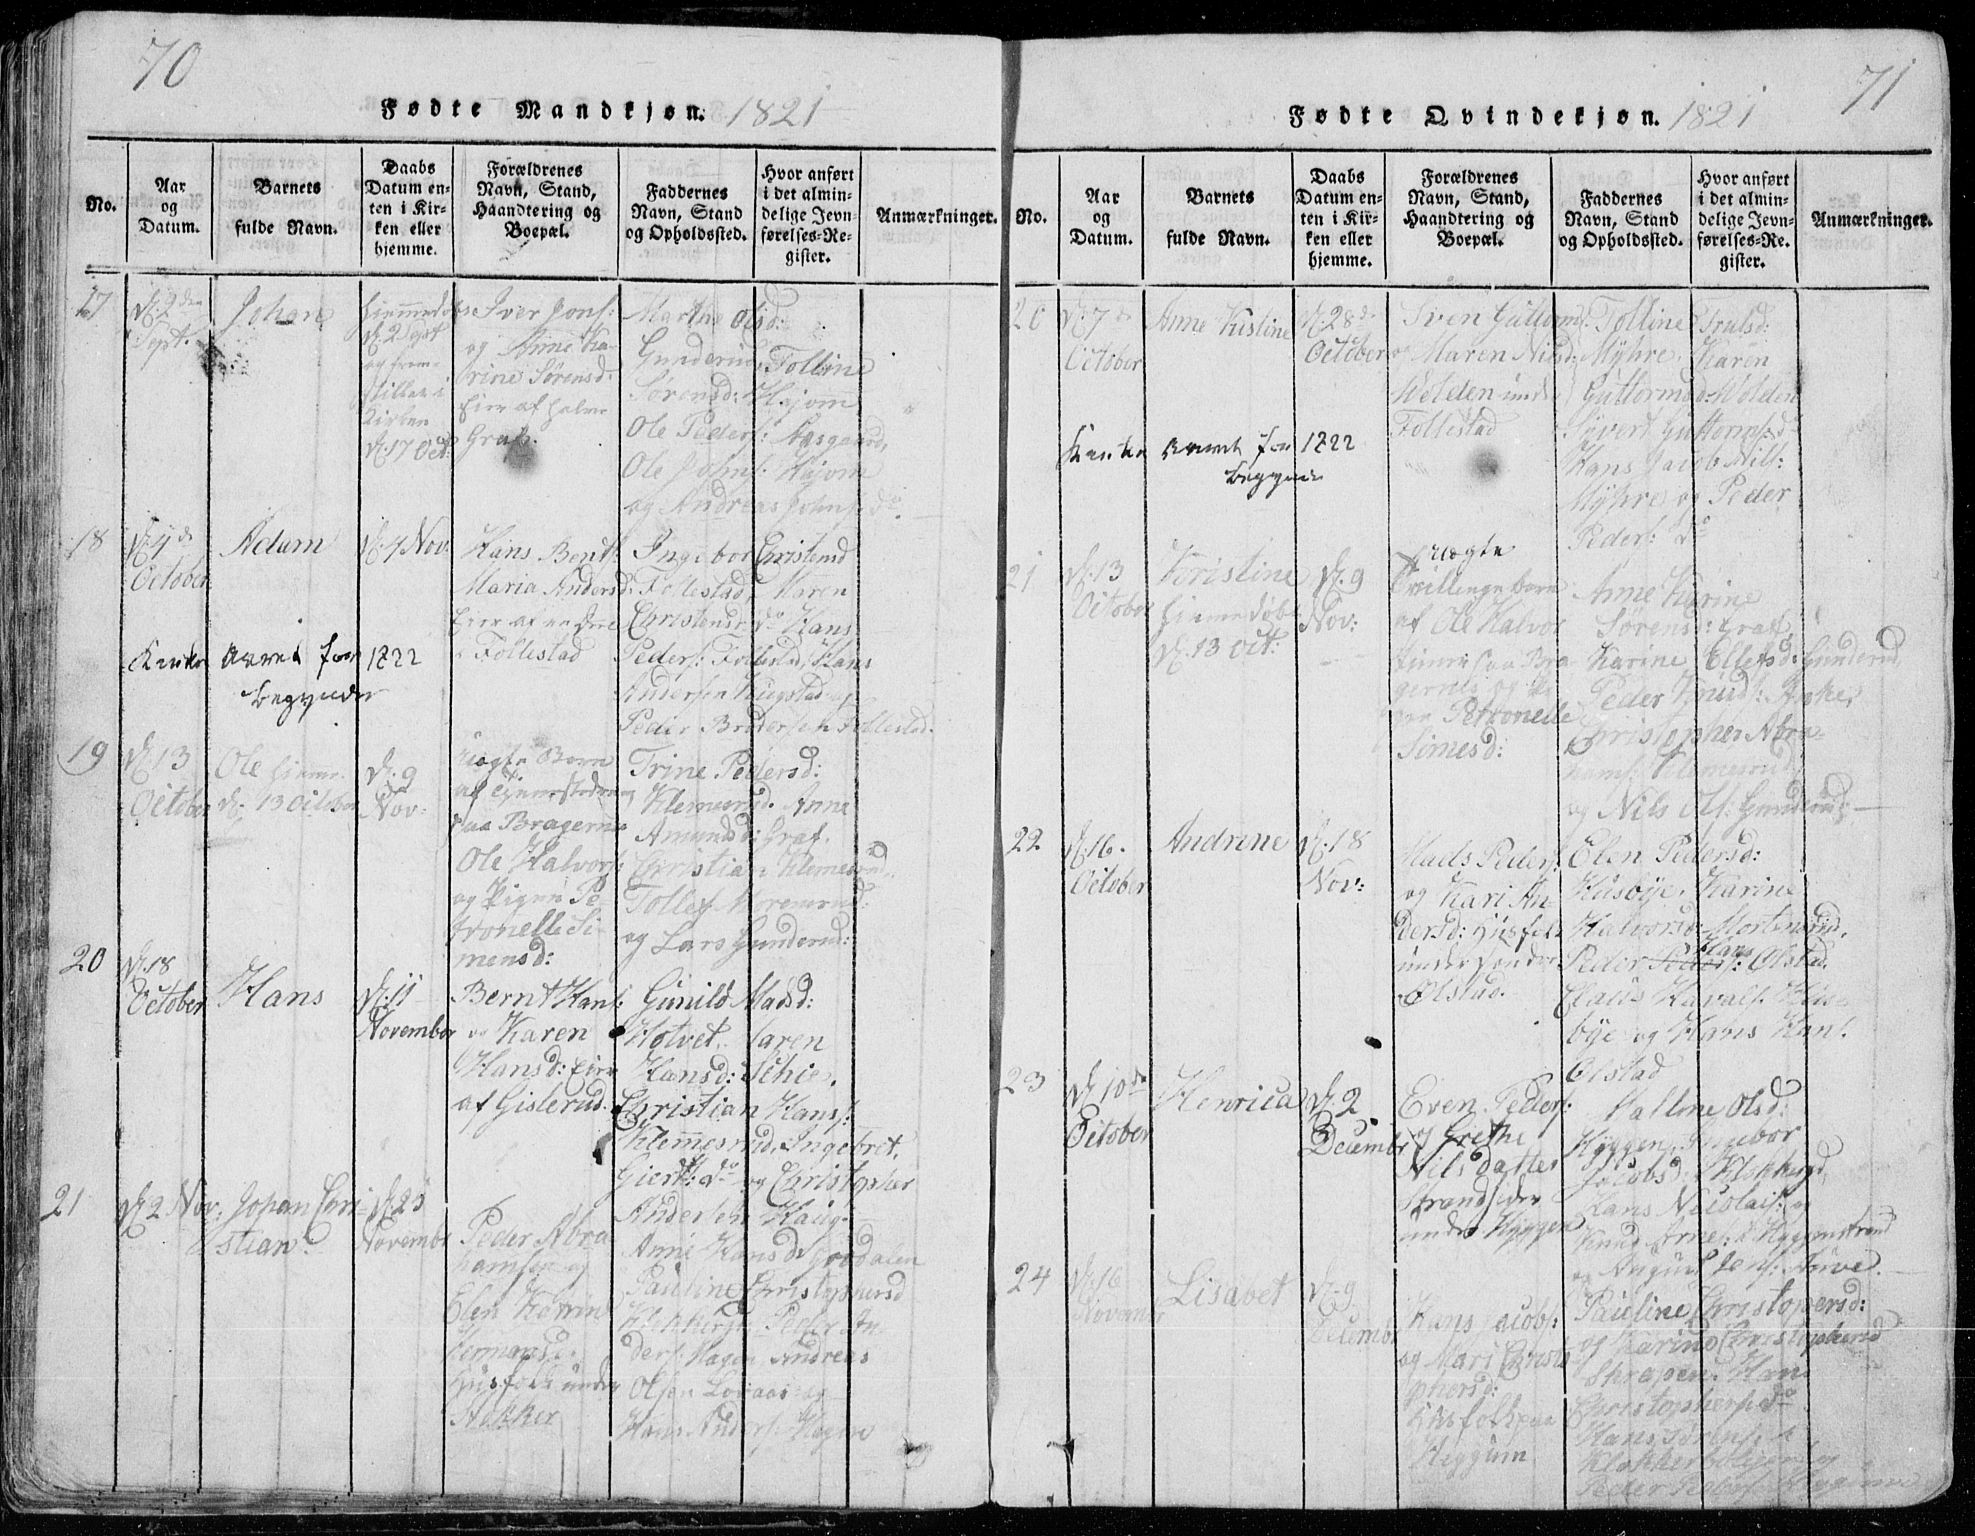 70
Fødte Mandkjøn. 1821
No.
Aar
og
Datum.
Barnets
fulde Navn.
Daabs
Datum en-
ten i Kir-
ken eller
hjemme.
Forældrenes
Navn, Stand,
Haandtering og
Boepæl.
Faddernes
Navn, Stand
og Opholdssted.
Hvor anført
i det almin-
delige Jevn-
førelses-Re-
gister.
Anmærkninger.
17
d. 2den
Sept.
Johan
hiemmedøbt
d. 2 Sept
og frem-
stillet i
Kirken
d. 17 Oct:
Iver Jons:
og Anne Ka-
rine Sørensd.
Eier af halve
Graf.
Marthe Olsd:
Gunderud, Tolline
Sørensd: Hajom
Ole Peders: Aasgaard,
Ole Johns: Hajom
og Andreas Johns: do.
18
d. 4de
October
Adam
d. 7 Nov:
Hans Bent
Maria Andersd:
Eier af nedre
Follestad
Ingebor Christensd
Follestad, Maren
Christensd do Hans
Peders: Follestad, Hans
Andersen
Peder Bredersen Follestad.
Kirke Aaret for 1822
begynder
19
d. 13
October
Ole hiemme-
d. 13 October
d. 9
Nov:
uægte Barn
af
paa Bragernes
Ole Halvors:
og Pigen Pe-
tronelle Si-
mensd:
Trine Pedersd:
Klemesrud. Anne
Amundsd: Graf.
Christian Klemesrud.
Tollef Morenrud:
og Lars Gunderud:
20
d. 18
October
Hans
d. 11
November
Bernt Hans:
og Karen
Hansd: Eier
af Gislerud.
Gunild Madsd:
Hotvet. Maren
Hansd: Schie.
Christian Hanss:
Klemmesrud, Ingebret
Giert: do og Christopher
Andersen Haug.
21
d. 2 Nov:
Johan Chri-
stian.
d. 25
November
Peder Abra
hamsen og
Elen Karrine
Hermansd.
Husfolk under
Stokker
Anne Hansd:
Pauline Christophersd
Klokkergd. Peder An-
ders: Hagen, Andreas
Olsen og
Hans Anders: Hagen
71
Fødte Qvindekjøn. 1821
No.
Aar
og
Datum.
Barnets
fulde Navn.
Daabs
Datum en-
ten i Kir-
ken eller
hjemme.
Forældrenes
Navn, Stand,
Haandtering og
Boepæl.
Faddernes
Navn, Stand
og Opholdssted.
Hvor anført
i det almin-
delige Jevn-
førelses-Re-
gister.
Anmærkninger.
20
d. 7de
October
Anne Kistine
d. 28de
October
Sven Guttorms:
og Maren Nilsd:
Wolden under
Follestad
Tolline Trulsd:
Myhre. Karen
Guttormsd: Wolden
Syvert Guttorms: do
Hans Jacob Nils:
Myhre og Peder
Peders: do
Kirke Aaret for 1822
begynder
21
d. 13
October
Kristine
hiemmedøbt
d. 13 Oct:
d. 9
Nov:
uægte
Tvillingebarn
af Ole Halvor
paa Bra-
gernes og Pi-
gen Petronelle
Simesd:
Anne Karine
Sørens: Graf,
Karine Ellefsd: Gunderud,
Peder Knuds:
Christopher Abra-
hams: Klemesrud
og Nils Ols: Gunderud:
22
d. 16.
October
Andrine
d. 18
Nov:
Mads Peders:
og Kari An-
dersd: Husfolk
under Sønder
Ølstad.
Elen Pedersd:
Husbye. Karine
Halvorsd Mortensrud.
Peder Hans: Ølstad.
Claus Havals: Hus-
bye og Hans Hans:
Ølstad
23
d. 10de
October
Henrica
d. 2
December
Even Peders:
og Grethe
Nils datter
Strandsidder
under Hyggen
Malline Olsd:
Hyggen, Ingebor
Jacobsd: Klokkergd,
Hans Nicolais: og
Knud Arne: Hyggenstrand
og August Jens:
24
d. 16
November
Lisabet
d. 9
December
Hans Jacobs:
og Mari Christo
phersd:
Husfolk paa
Heggum
Pauline Christopersd:
og Karine Christophersd
Skrapen. Hans
Christophers: do
Hans Sørens: